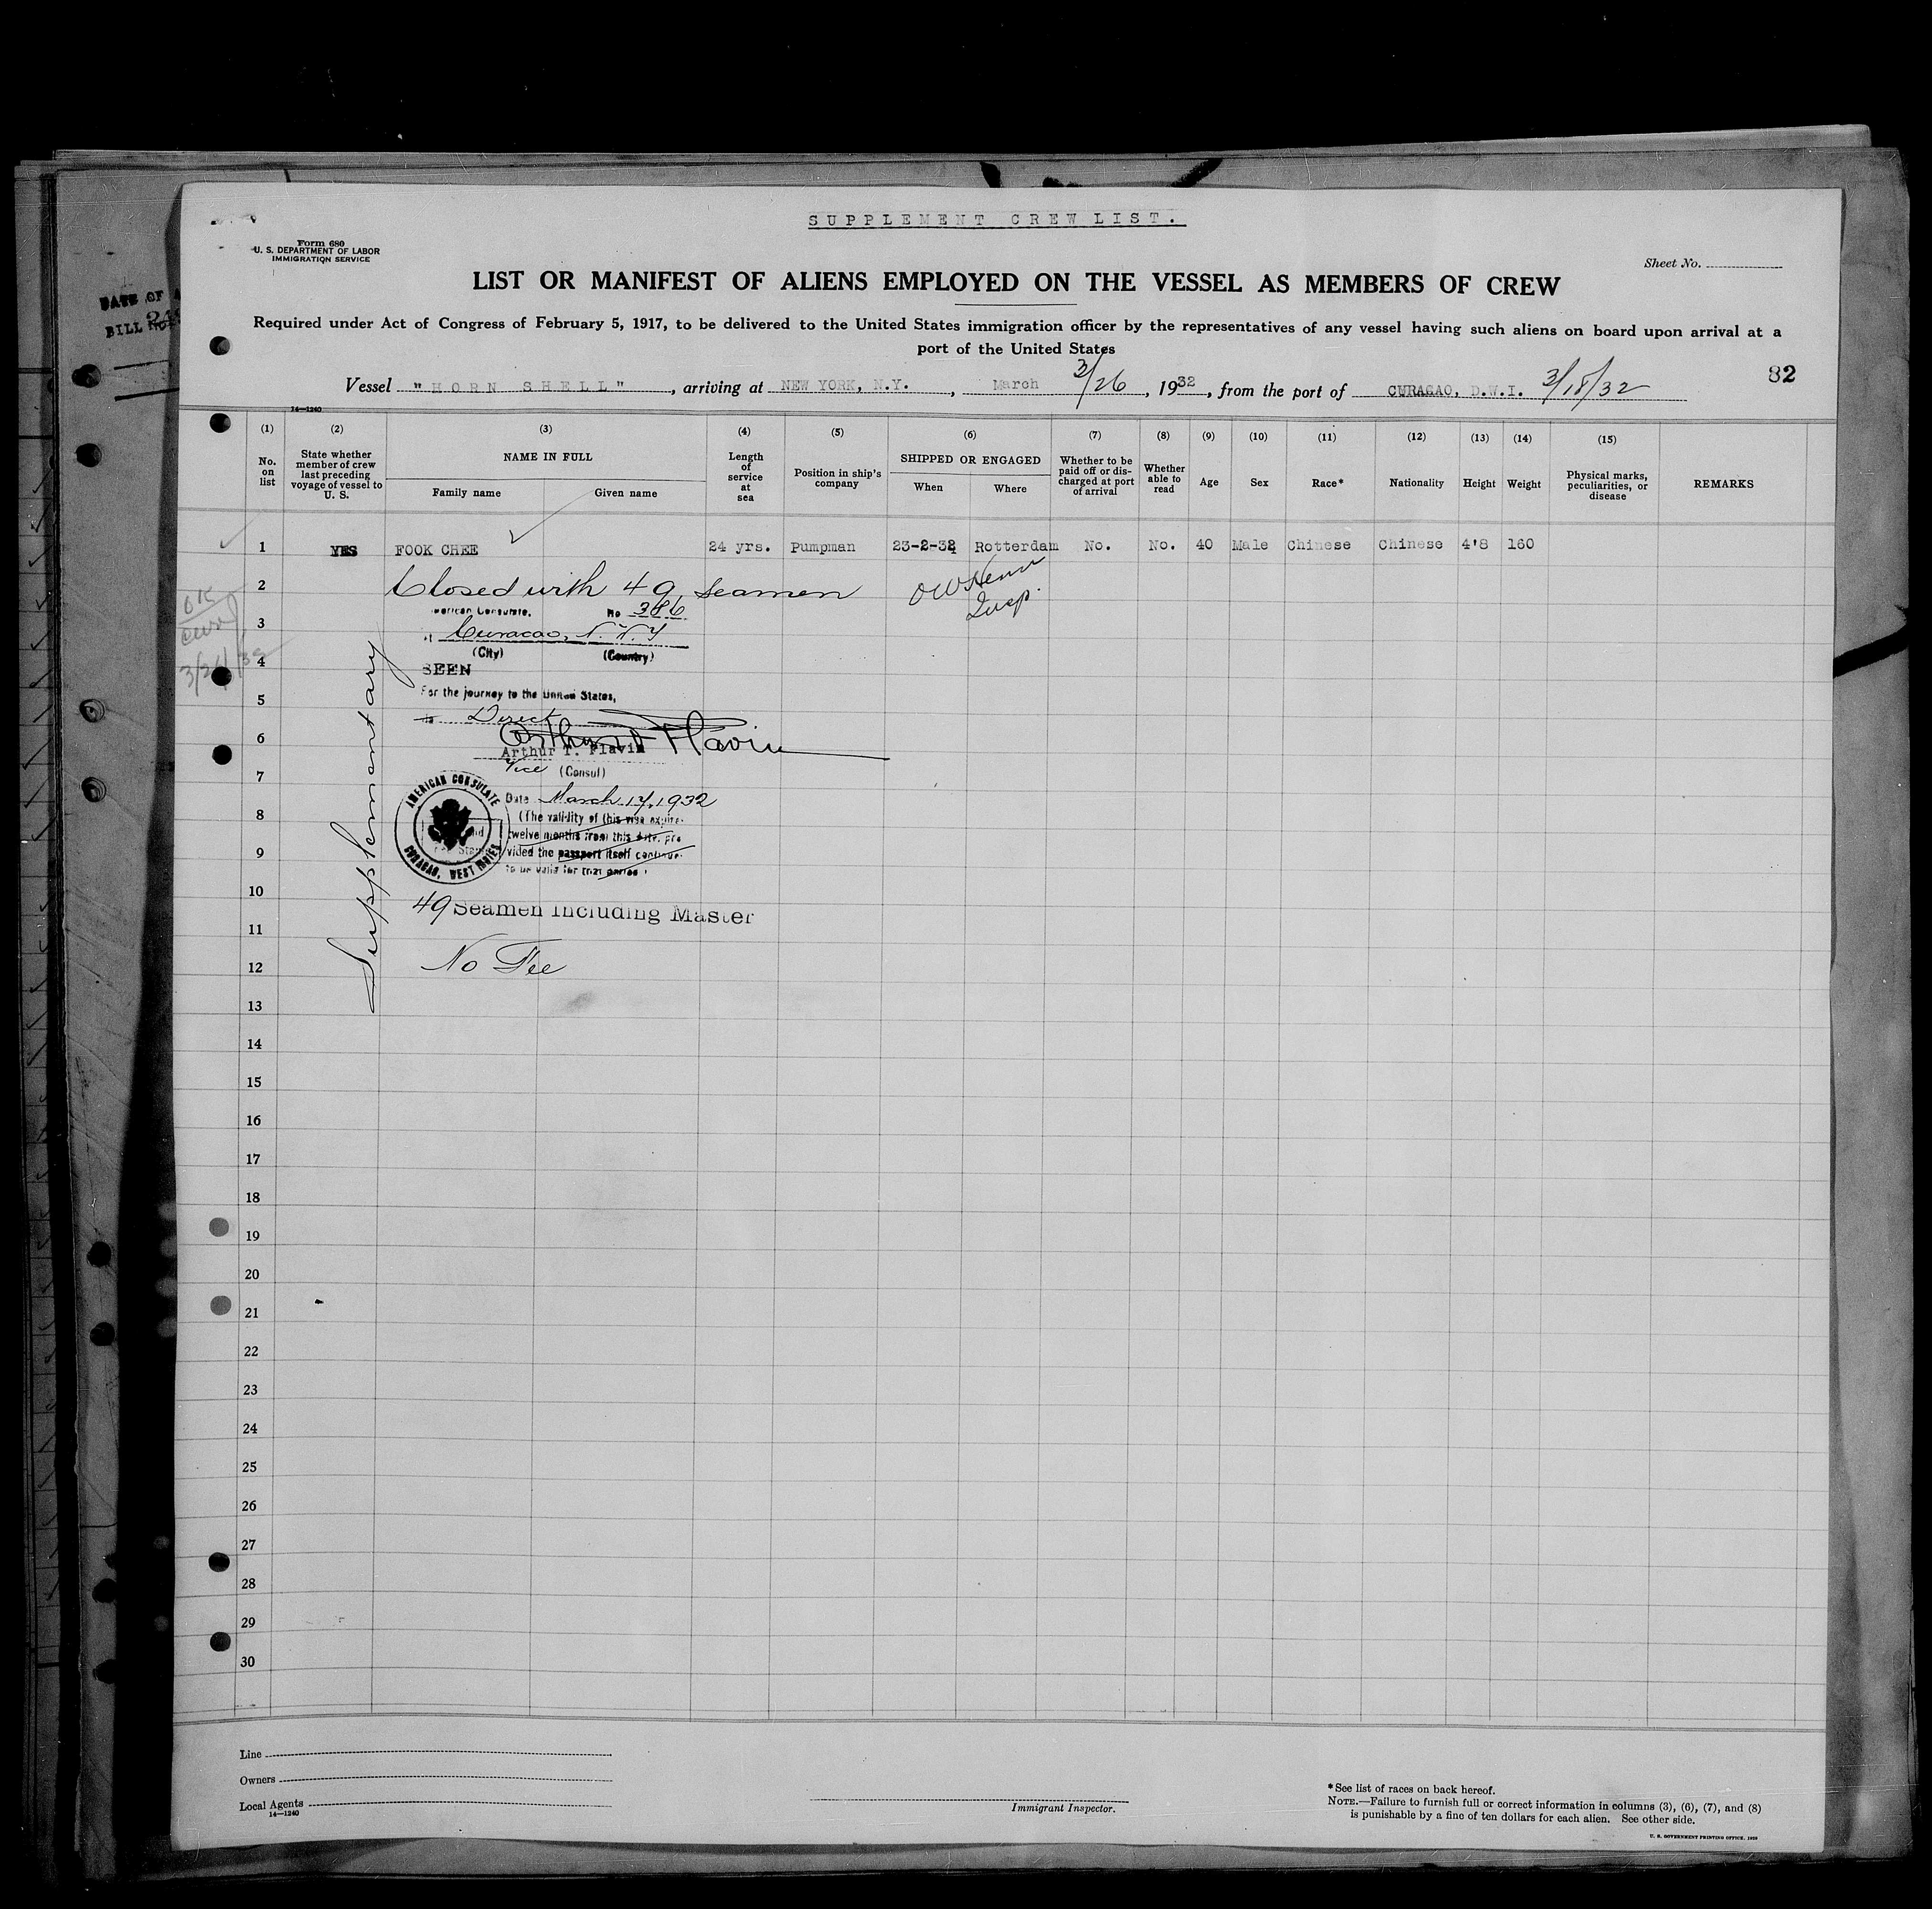 SUPPLEMENT CREW LIST.
Form 680
U. S. DEPARTMENT OF LABOR
IMMIGRATION SERVICE
Sheet No.
LIST OR MANIFEST OF ALIENS EMPLOYED ON THE VESSEL AS MEMBERS OF CREW
Required under Act of Congress of February 5, 1917, to be delivered to the United States immigration officer by the representatives of any vessel having such aliens on board upon arrival at a
port of the United States
82
Vessel "HORN SHELL", arriving at NEW YORK, N.Y., March 3/26, 1932, from the port of CURACAO, D.W.I. 3/18/32
14—1240
(1) (2) (3) (4) (5) (6) (7) (8) (9) (10) (11) (12) (13) (14) (15)
No. on list
State whether member of crew last preceding voyage of vessel to U. S.
NAME IN FULL
Family name
Given name
Length of service at sea
Position in ship's company
SHIPPED OR ENGAGED
When
Where
Whether to be paid off or discharged at port of arrival
Whether able to read
Age
Sex
Race*
Nationality
Height
Weight
Physical marks, peculiarities, or disease
REMARKS
1 YES FOOK CHEE 24 yrs. Pumpman 23-2-32 Rotterdam No. No. 40 Male Chinese Chinese 4'8 160
2 Closed with 49 seamen
Insp.
OK
3/26/32
American Consulate, No 386
3
at Curacao, N.W.I
(City) (Country)
4
SEEN
For the journey to the United States,
5
to Direct
6
Arthur T. Flavin
Arthur T. Flavin
Vice (Consul)
7
Date March 17, 1932
8
(The validity of this visa expires
twelve months from this date, pro
9
vided the passport itself continues
to be valid for that period
AMERICAN CONSULATE
CURACAO, WEST INDIES
Supplementary
10
49 Seamen Including Master
11
12 No Fee
13
14
15
16
17
18
19
20
21
22
23
24
25
26
27
28
29
30
Line
Owners
Local Agents
14—1240
Immigrant Inspector.
*See list of races on back hereof.
NOTE.—Failure to furnish full or correct information in columns (3), (6), (7), and (8)
is punishable by a fine of ten dollars for each alien. See other side.
U. S. GOVERNMENT PRINTING OFFICE
DATE OF
BILL NO.